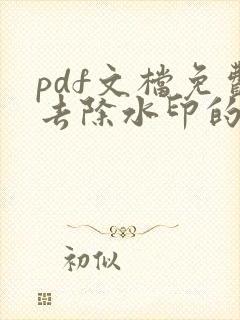 pdf文檔免費
去除水印的
初似